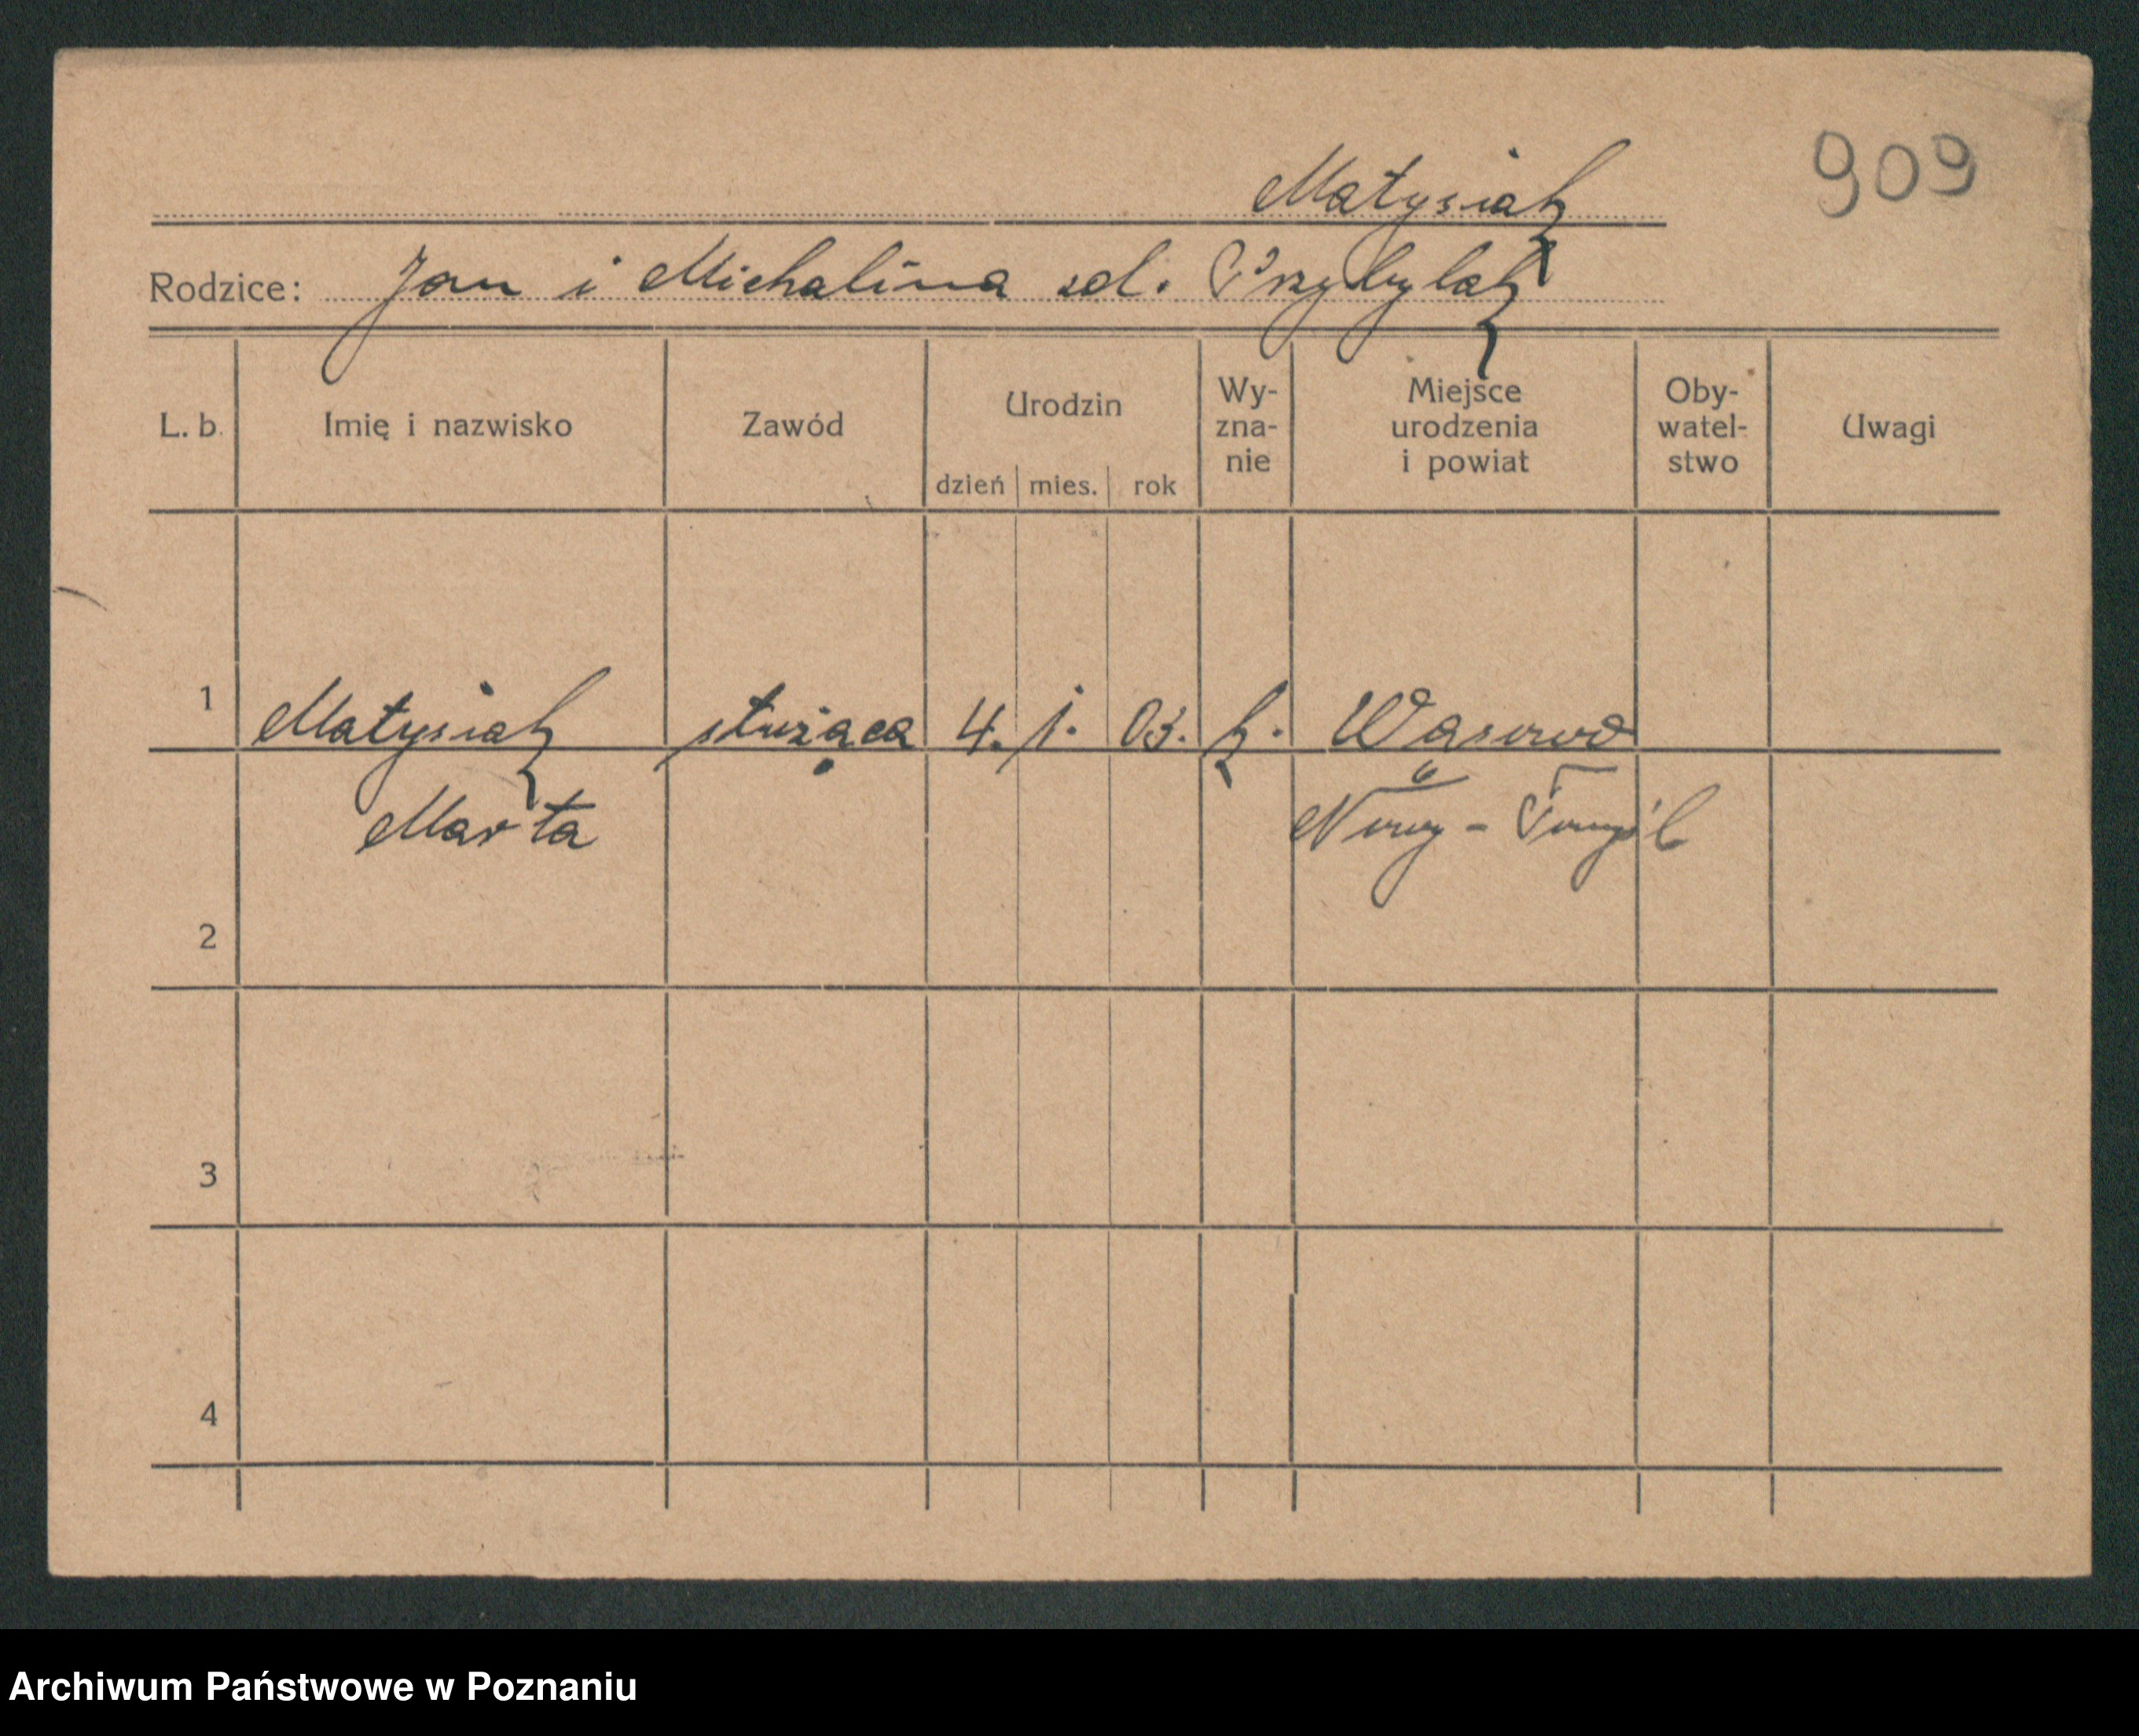 909
Matysiak
Rodzice: Jan i Michalina zd. Przybylak
L. b. Imię i nazwisko Zawód Urodzin Wy-zna-nie Miejsce urodzenia i powiat Oby-watel-stwo Uwagi
dzień mies. rok
1 Matysiak służąca 4. 1. 03. k. Wąsowo
Marta Nowy-Tomyśl
2
3
4
Archiwum Państwowe w Poznaniu